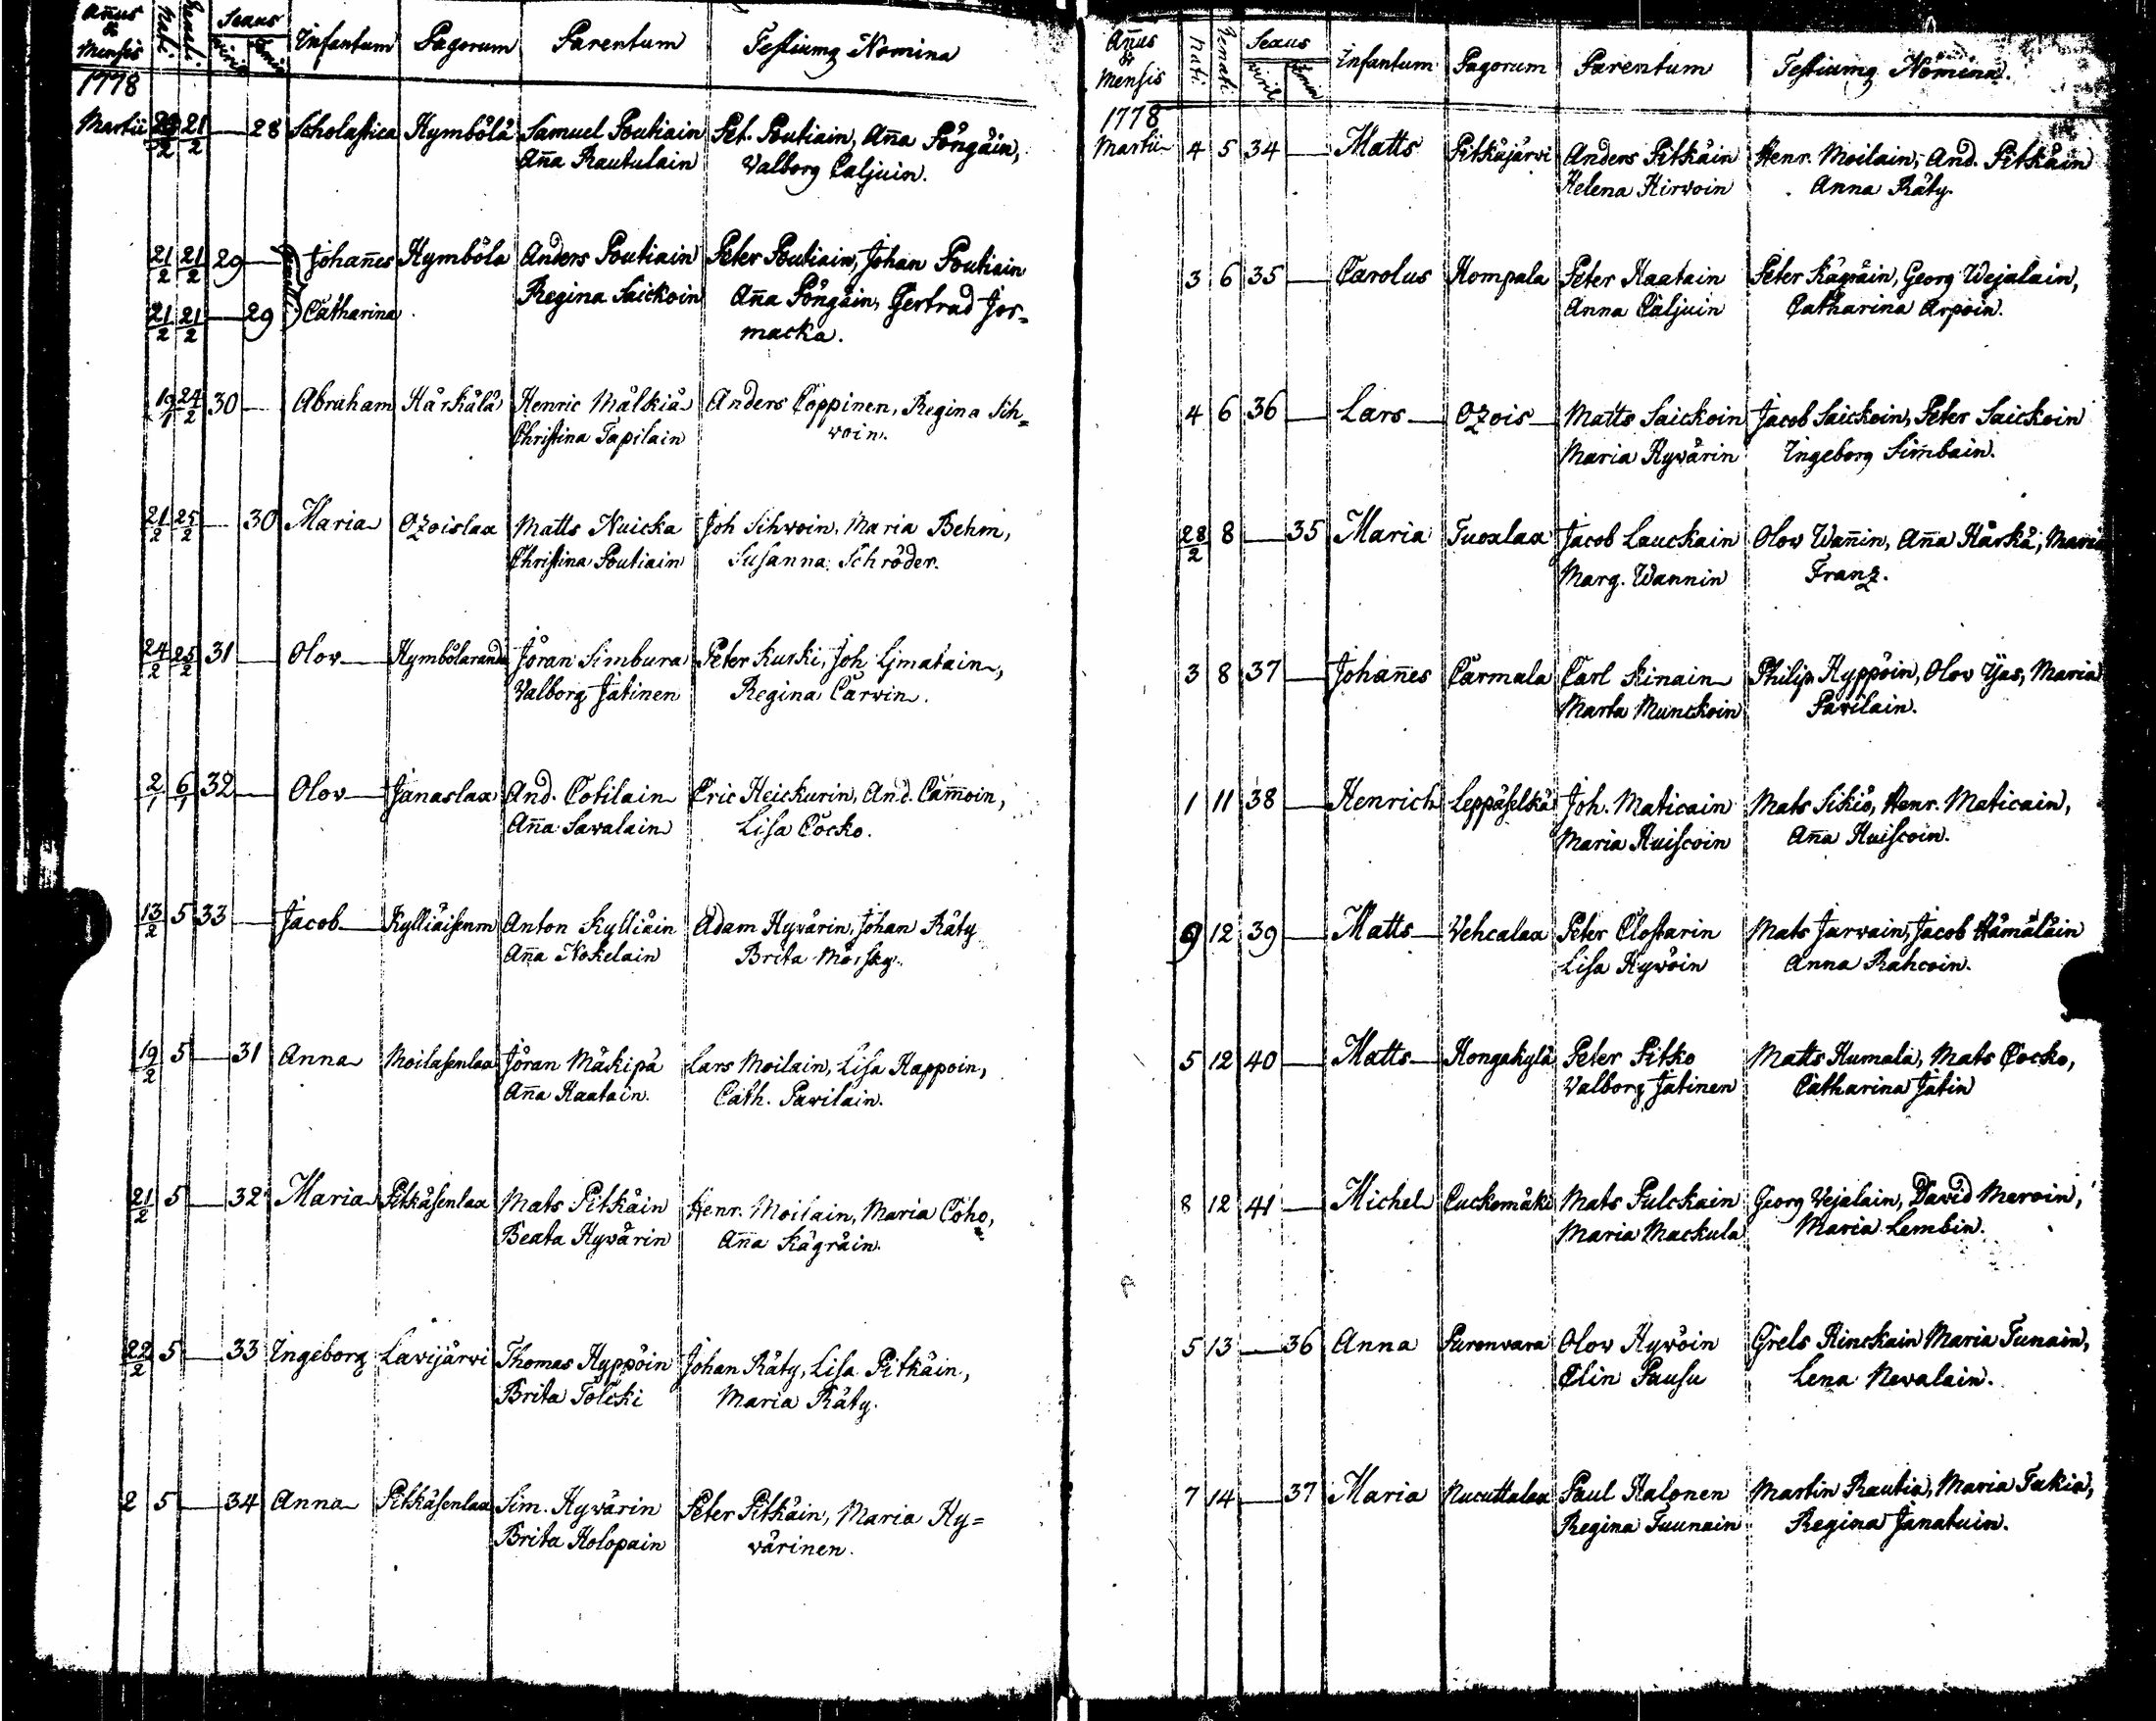 Añus & Mensis Nati. Renati. Sexus Viril. Femin. Infantum Pagorum Parentum Testiumq Nomina
1778
Martii 21/2 — 28 Scholastica Kymbölä Samuel Poutiain Pet. Poutiain, Aña Pöngäin,
Aña Rautulain Valborg Caljuin.
21/2 21/2 29 — Johañes Kymbölä Anders Poutiain Peter Poutiain, Johan Poutiain
Regina Saickoin Aña Pöngäin, Gertrud Jor=
21/2 21/2 — 29 Catharina
macka.
19/1 24/2 30 — Abraham Härkälä Henric Mälkiä Anders Coppinen, Regina Sih=
Christina Tapilain woin.
21/2 25/2 — 30 Maria Ozoislax Matts Nuicka Joh Sihwoin, Maria Behm,
Christina Poutiain Susanna Schröder.
24/2 25/2 31 — Olov Kymbölaranda Jöran Simbura Peter Kurki, Joh Ijmatain,
Valborg Jätinen Regina Carvin.
2/1 6/1 32 — Olov Janaslax And. Cotilain Eric Heickurin, And. Cam̃oin,
Aña Savalain Lisa Cocko.
13/2 5 33 — Jacob Kylliäisenm Anton Kylliäin Adam Hyvärin, Johan Räty
Aña Nokelain Brita Mörsky.
19/2 5 — 31 Anna Moilasenlax Jöran Mäkipä Lars Moilain, Lisa Happoin,
Aña Haatain. Cath. Pavilain.
21/2 5 — 32 Maria Pitkäsenlax Mats Pitkäin Henr. Moilain, Maria Coho,
Beata Hyvärin Aña Kägräin.
22/2 5 — 33 Ingeborg Lavijärvi Thomas Hyppöin Johan Räty, Lisa Pitkäin,
Brita Tolcki Maria Räty.
2 5 — 34 Anna Pitkäsenlax Sim. Hyvärin Peter Pitkäin, Maria Hy=
Brita Holopain värinen.
Añus & Mensis Nati. Renati. Sexus Viril. Femin. Infantum Pagorum Parentum Testiumq Nomina.
1778
Martii 4 5 34 — Matts Pitkäjärvi Anders Pitkäin Henr. Moilain, And. Pitkäin
Helena Hirvoin Anna Räty.
3 6 35 — Carolus Kompala Peter Haatain Peter Kägräin, Georg Wejalain,
Anna Caljuin Catharina Arpoin.
4 6 36 — Lars Ozois Matts Saickoin Jacob Saickoin, Peter Saickoin
Maria Hyvärin Ingeborg Simbain.
28/2 8 — 35 Maria Tuoxlax Jacob Lauckain Olov Wañin, Aña Härkä, Maria
Marg. Wannin Franz.
3 8 37 — Johañes Carmala Carl Kinain Philip Hyppöin, Olov Yjas, Maria
Marta Munckoin Pavilain.
1 11 38 — Henrich Leppäselkä Joh. Maticain Mats Sikiö, Henr. Maticain,
Maria Huiscoin Aña Huiscoin.
9 12 39 — Matts Vehcalax Peter Clostarin Mats Jarvain, Jacob Hämäläin
Lisa Hyvöin Anna Rahcoin.
5 12 40 — Matts Hongakylä Peter Pitko Matts Humala, Mats Cocko,
Valborg Jätinen Catharina Jätin
8 12 41 — Michel Cuckomäki Mats Pulckain Georg Vejalain, David Marvin,
Maria Mackula Maria Lembin.
5 13 — 36 Anna Surenvara Olov Hyvöin Grels Hinckain Maria Tunain,
Elin Pausu Lena Nevalain.
7 14 — 37 Maria Nucuttalax Paul Halonen Martin Rautia, Maria Takia,
Regina Tuunain Regina Janatuin.